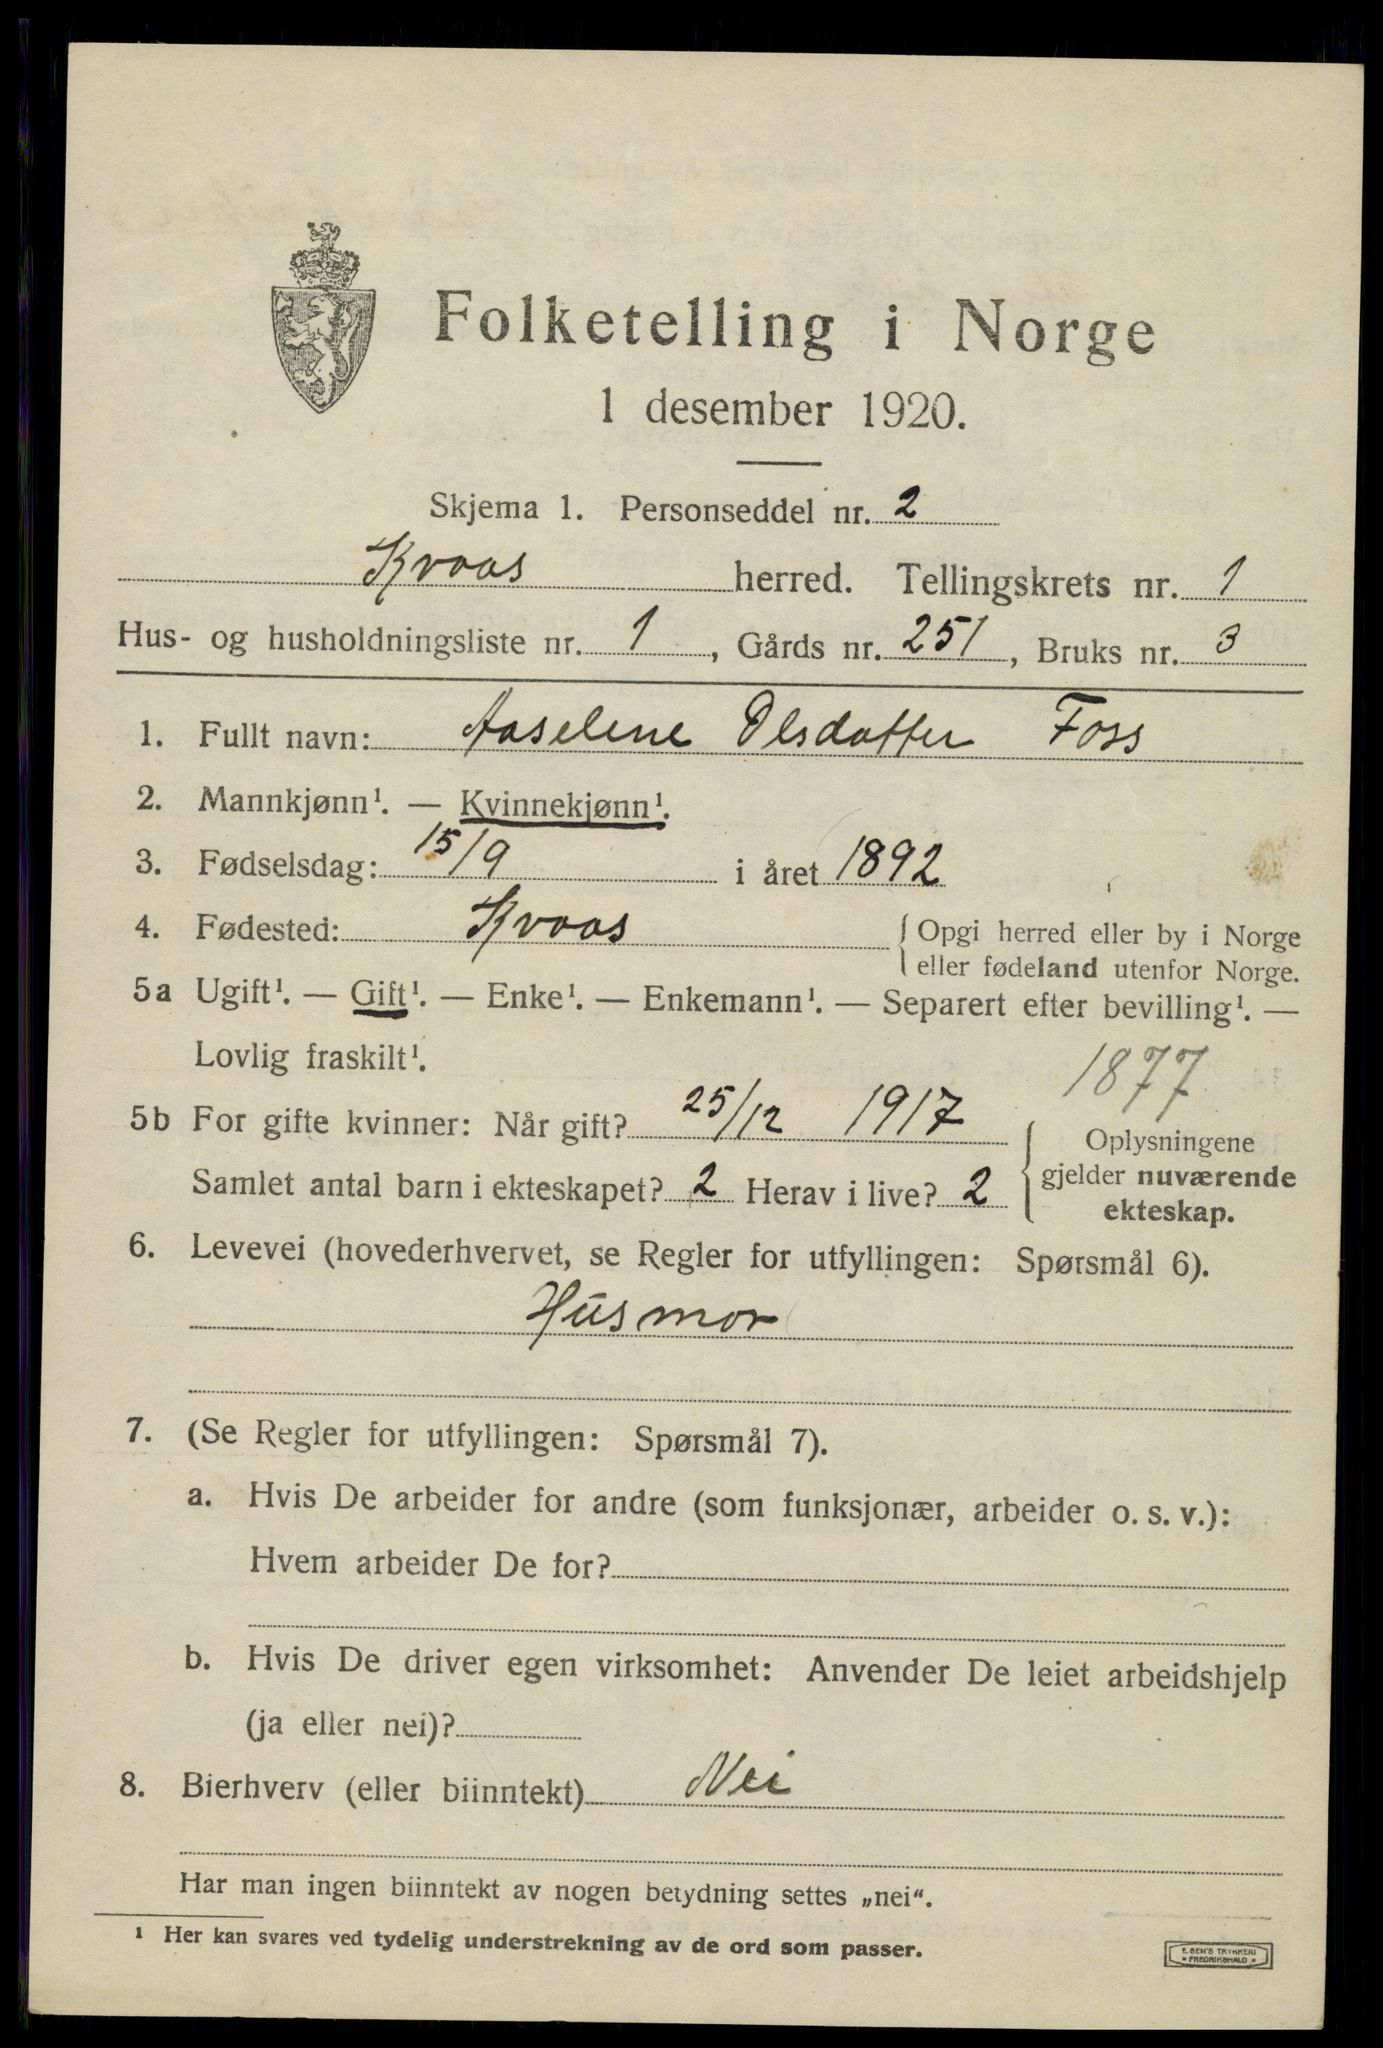 Folketelling i Norge
1 desember 1920.
Skjema 1. Personseddel nr. 2
Kvaas herred. Tellingskrets nr. 1
Hus- og husholdningsliste nr. 1, Gårds nr. 251, Bruks nr. 3
1. Fullt navn: Aaselene Olsdatter Foss
2. Mannkjønn¹. — Kvinnekjønn¹.
3. Fødselsdag: 15/9 i året 1892
4. Fødested: Kvaas { Opgi herred eller by i Norge
eller fødeland utenfor Norge.
5a Ugift¹. — Gift¹. — Enke¹. — Enkemann¹. — Separert efter bevilling¹. —
Lovlig fraskilt¹.
1877
5b For gifte kvinner: Når gift? 25/12 1917
Samlet antal barn i ekteskapet? 2 Herav i live? 2
{ Oplysningene
gjelder nuværende
ekteskap.
6. Levevei (hovederhvervet, se Regler for utfyllingen: Spørsmål 6).
Husmor
7. (Se Regler for utfyllingen: Spørsmål 7).
a. Hvis De arbeider for andre (som funksjonær, arbeider o. s. v.):
Hvem arbeider De for?
b. Hvis De driver egen virksomhet: Anvender De leiet arbeidshjelp
(ja eller nei)?
8. Bierhverv (eller biinntekt) Nei
Har man ingen biinntekt av nogen betydning settes „nei“.
¹ Her kan svares ved tydelig understrekning av de ord som passer.
E. SEM'S TRYKKERI
* FREDRIKSHALD *